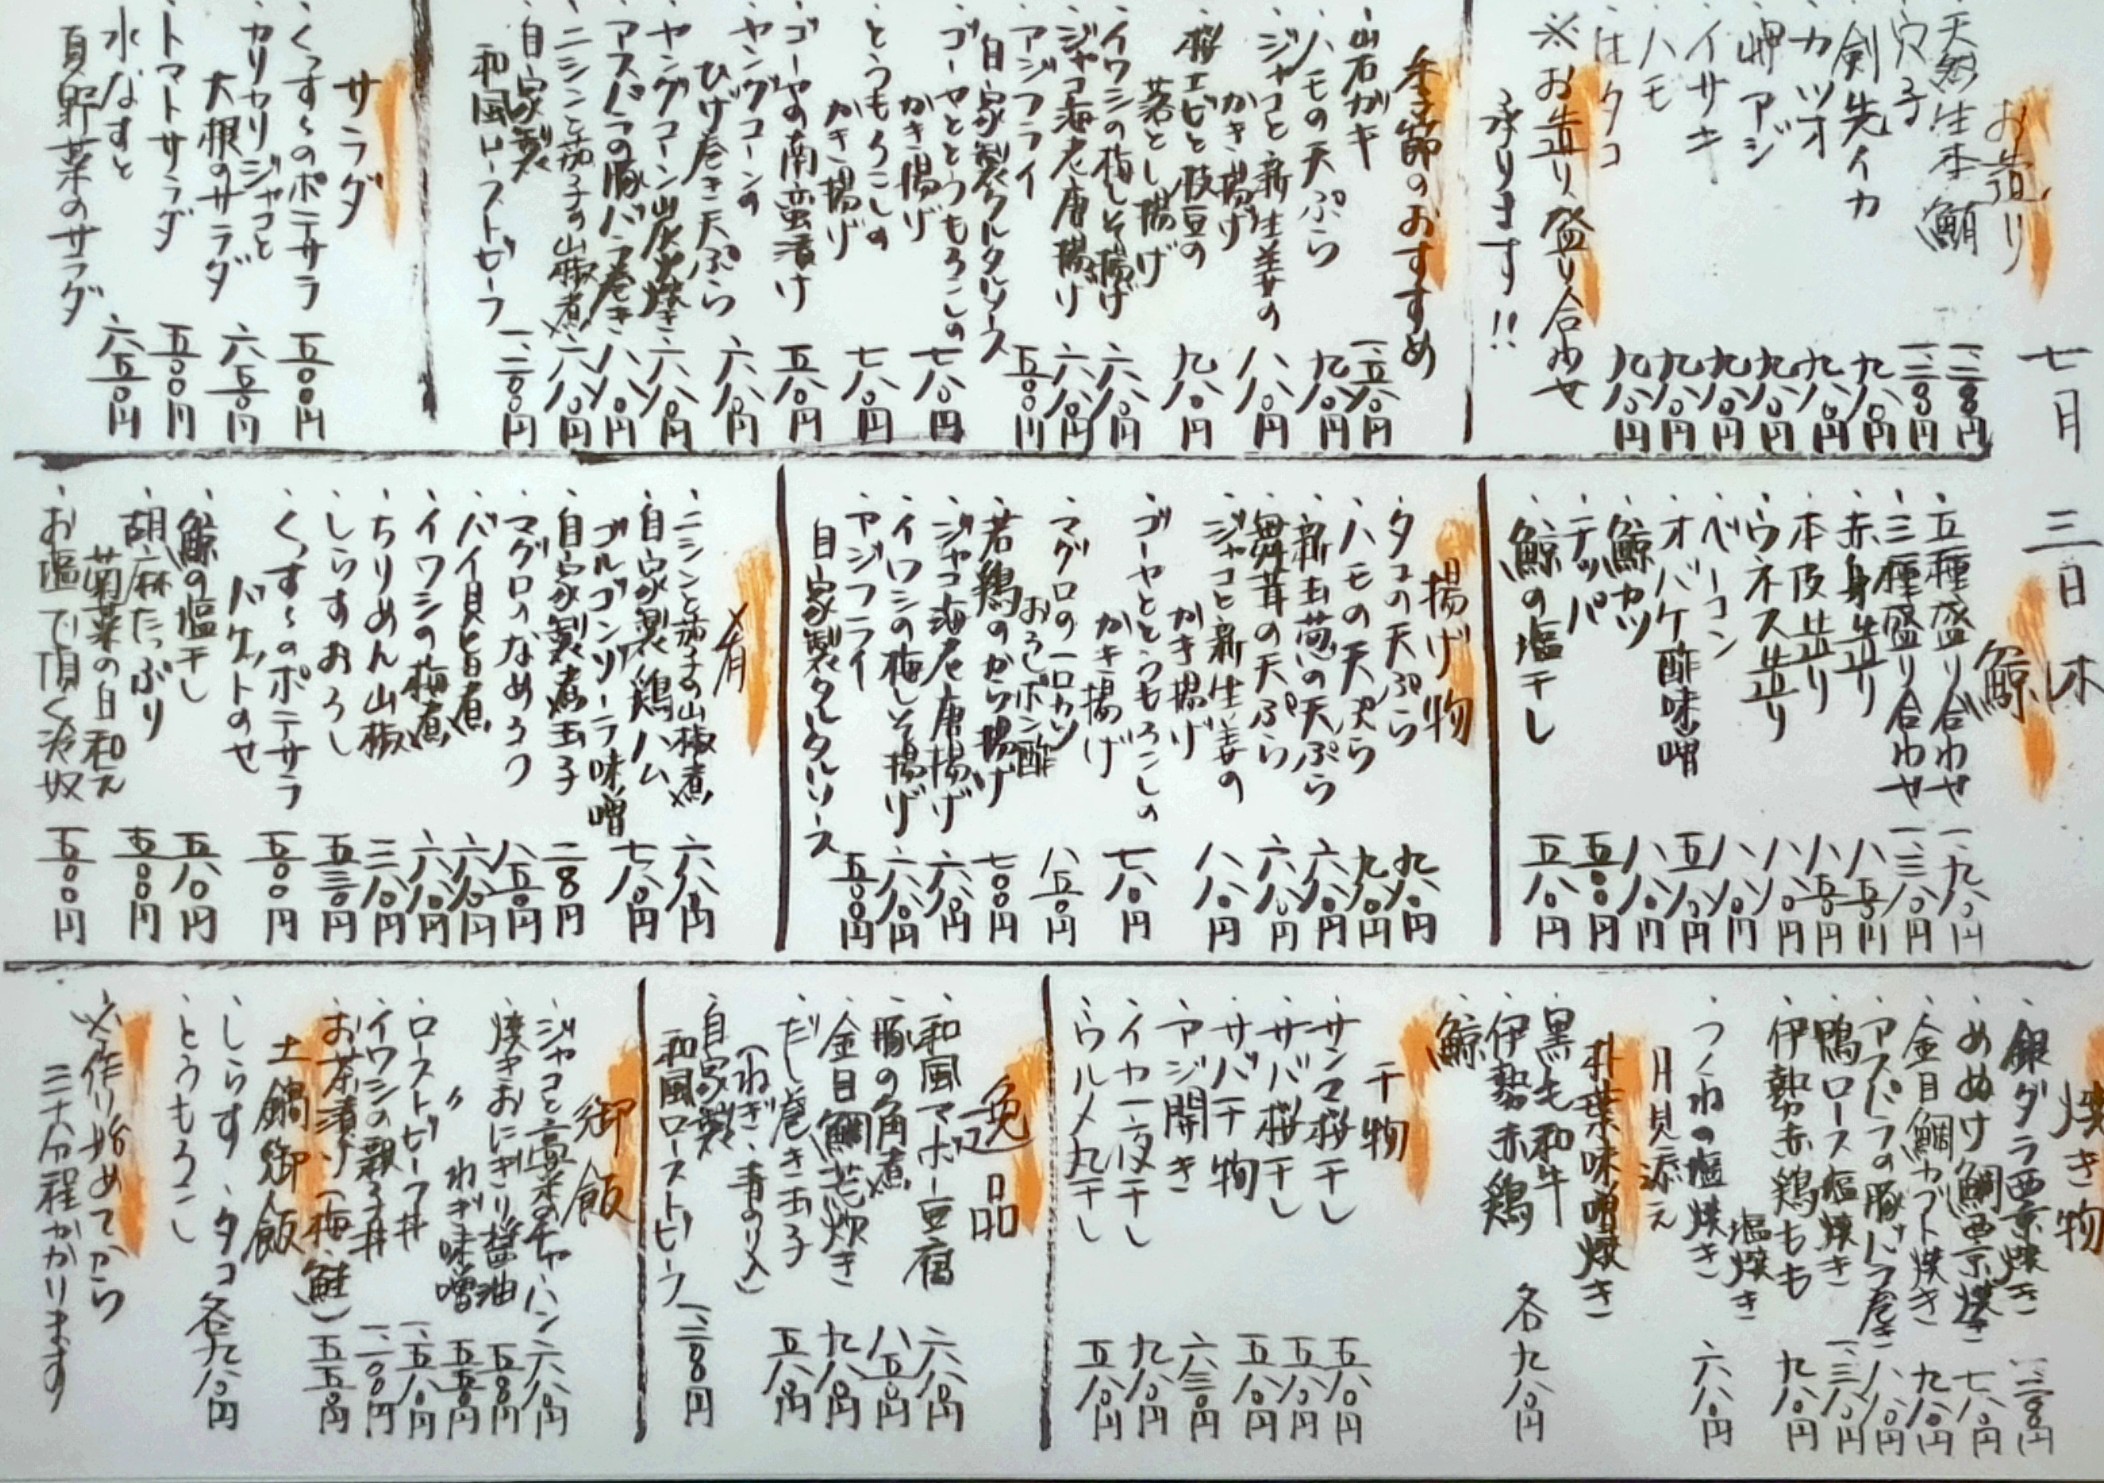 七月三日 木
お造り
・天然生本鮪 一、二八〇円
・穴子 一、二八〇円
・剣先イカ 九八〇円
・カツオ 九八〇円
・岬アジ 九八〇円
・イサキ 九八〇円
・ハモ 九八〇円
・生タコ 九八〇円
※お造り盛り合わせ
承ります!!
季節のおすすめ
・岩ガキ 一、五八〇円
・ハモの天ぷら 九八〇円
・ジャコと新生姜の
かき揚げ 八八〇円
・桜エビと枝豆の
落とし揚げ 九八〇円
・イワシの梅しそ揚げ 六八〇円
・ジャコ海老唐揚げ 六八〇円
・アジフライ
自家製タルタルソース 五八〇円
・ゴーヤととうもろこしの
かき揚げ 七八〇円
・とうもろこしの
かき揚げ 七八〇円
・ゴーヤの南蛮漬け 五八〇円
・ヤングコーンの
ひげ巻き天ぷら 六八〇円
・ヤングコーン炭火焼き 六八〇円
・アスパラの豚バラ巻き 八八〇円
・ニシンと茄子の山椒煮 六八〇円
・自家製
和風ローストビーフ 一、二八〇円
サラダ
・くっす〜のポテサラ 五〇〇円
・カリカリジャコと
大根のサラダ 六五〇円
・トマトサラダ 五〇〇円
・水なすと
夏野菜のサラダ 六五〇円
鯨
・五種盛り合わせ 一、九八〇円
・三種盛り合わせ 一、三八〇円
・赤身造り 八五〇円
・本皮造り 八五〇円
・ウネス造り 八八〇円
・ベーコン 八八〇円
・オバケ酢味噌 五八〇円
・鯨カツ 八八〇円
・テッパ 五八〇円
・鯨の塩干し 五八〇円
揚げ物
・タコの天ぷら 九八〇円
・ハモの天ぷら 九八〇円
・新玉葱の天ぷら 六八〇円
・舞茸の天ぷら 六八〇円
・ジャコと新生姜の
かき揚げ 八八〇円
・ゴーヤととうもろこしの
かき揚げ 七八〇円
・マグロの一口カツ
おろしポン酢 八五〇円
・若鶏のから揚げ 七〇〇円
・ジャコ海老唐揚げ 六八〇円
・イワシの梅しそ揚げ 六八〇円
・アジフライ
自家製タルタルソース 五八〇円
肴
・ニシンと茄子の山椒煮 六八〇円
・自家製鶏ハム
ゴルゴンゾーラ味噌 七八〇円
・自家製煮玉子 二八〇円
・マグロのなめろう 八五〇円
・バイ貝旨煮 六八〇円
・イワシの梅煮 六八〇円
・ちりめん山椒 三八〇円
・しらすおろし 五三〇円
・くっす〜のポテサラ
バゲットのせ 五〇〇円
・鯨の塩干し 五八〇円
・胡麻たっぷり
菊菜の白和え 五〇〇円
・お塩で頂く冷奴 五〇〇円
焼き物
・銀ダラ西京焼き 一、二八〇円
・めぬけ鯛西京焼き 七八〇円
・金目鯛カブト焼き 九八〇円
・アスパラの豚バラ巻き 八八〇円
・鴨ロース塩焼き 一、三八〇円
・伊勢赤鶏もも
塩焼き 九八〇円
・つくねの塩焼き 六八〇円
月見添え
朴葉味噌焼き
・黒毛和牛
・伊勢赤鶏 各九八〇円
・鯨
干物
・サンマ桜干し 五八〇円
・サバ桜干し 五八〇円
・サバ干物 五八〇円
・アジ開き 六三〇円
・イカ一夜干し 九八〇円
・ウルメ丸干し 五八〇円
逸品
・和風マーボー豆腐 六八〇円
・豚の角煮 八五〇円
・金目鯛荒炊き 九八〇円
・だし巻き玉子 五八〇円
(ねぎ、青のり入)
・自家製
和風ローストビーフ 一、二八〇円
御飯
・ジャコと高菜のチャーハン 六八〇円
・焼きおにぎり醤油 五五〇円
〃 ねぎ味噌 五五〇円
・ローストビーフ丼 一、五八〇円
・イワシの親子丼 一、一〇〇円
・お茶漬け(梅・鮭) 五五〇円
土鍋御飯
・しらす・タコ 各九八〇円
・とうもろこし
※作り始めてから
三十分程かかります